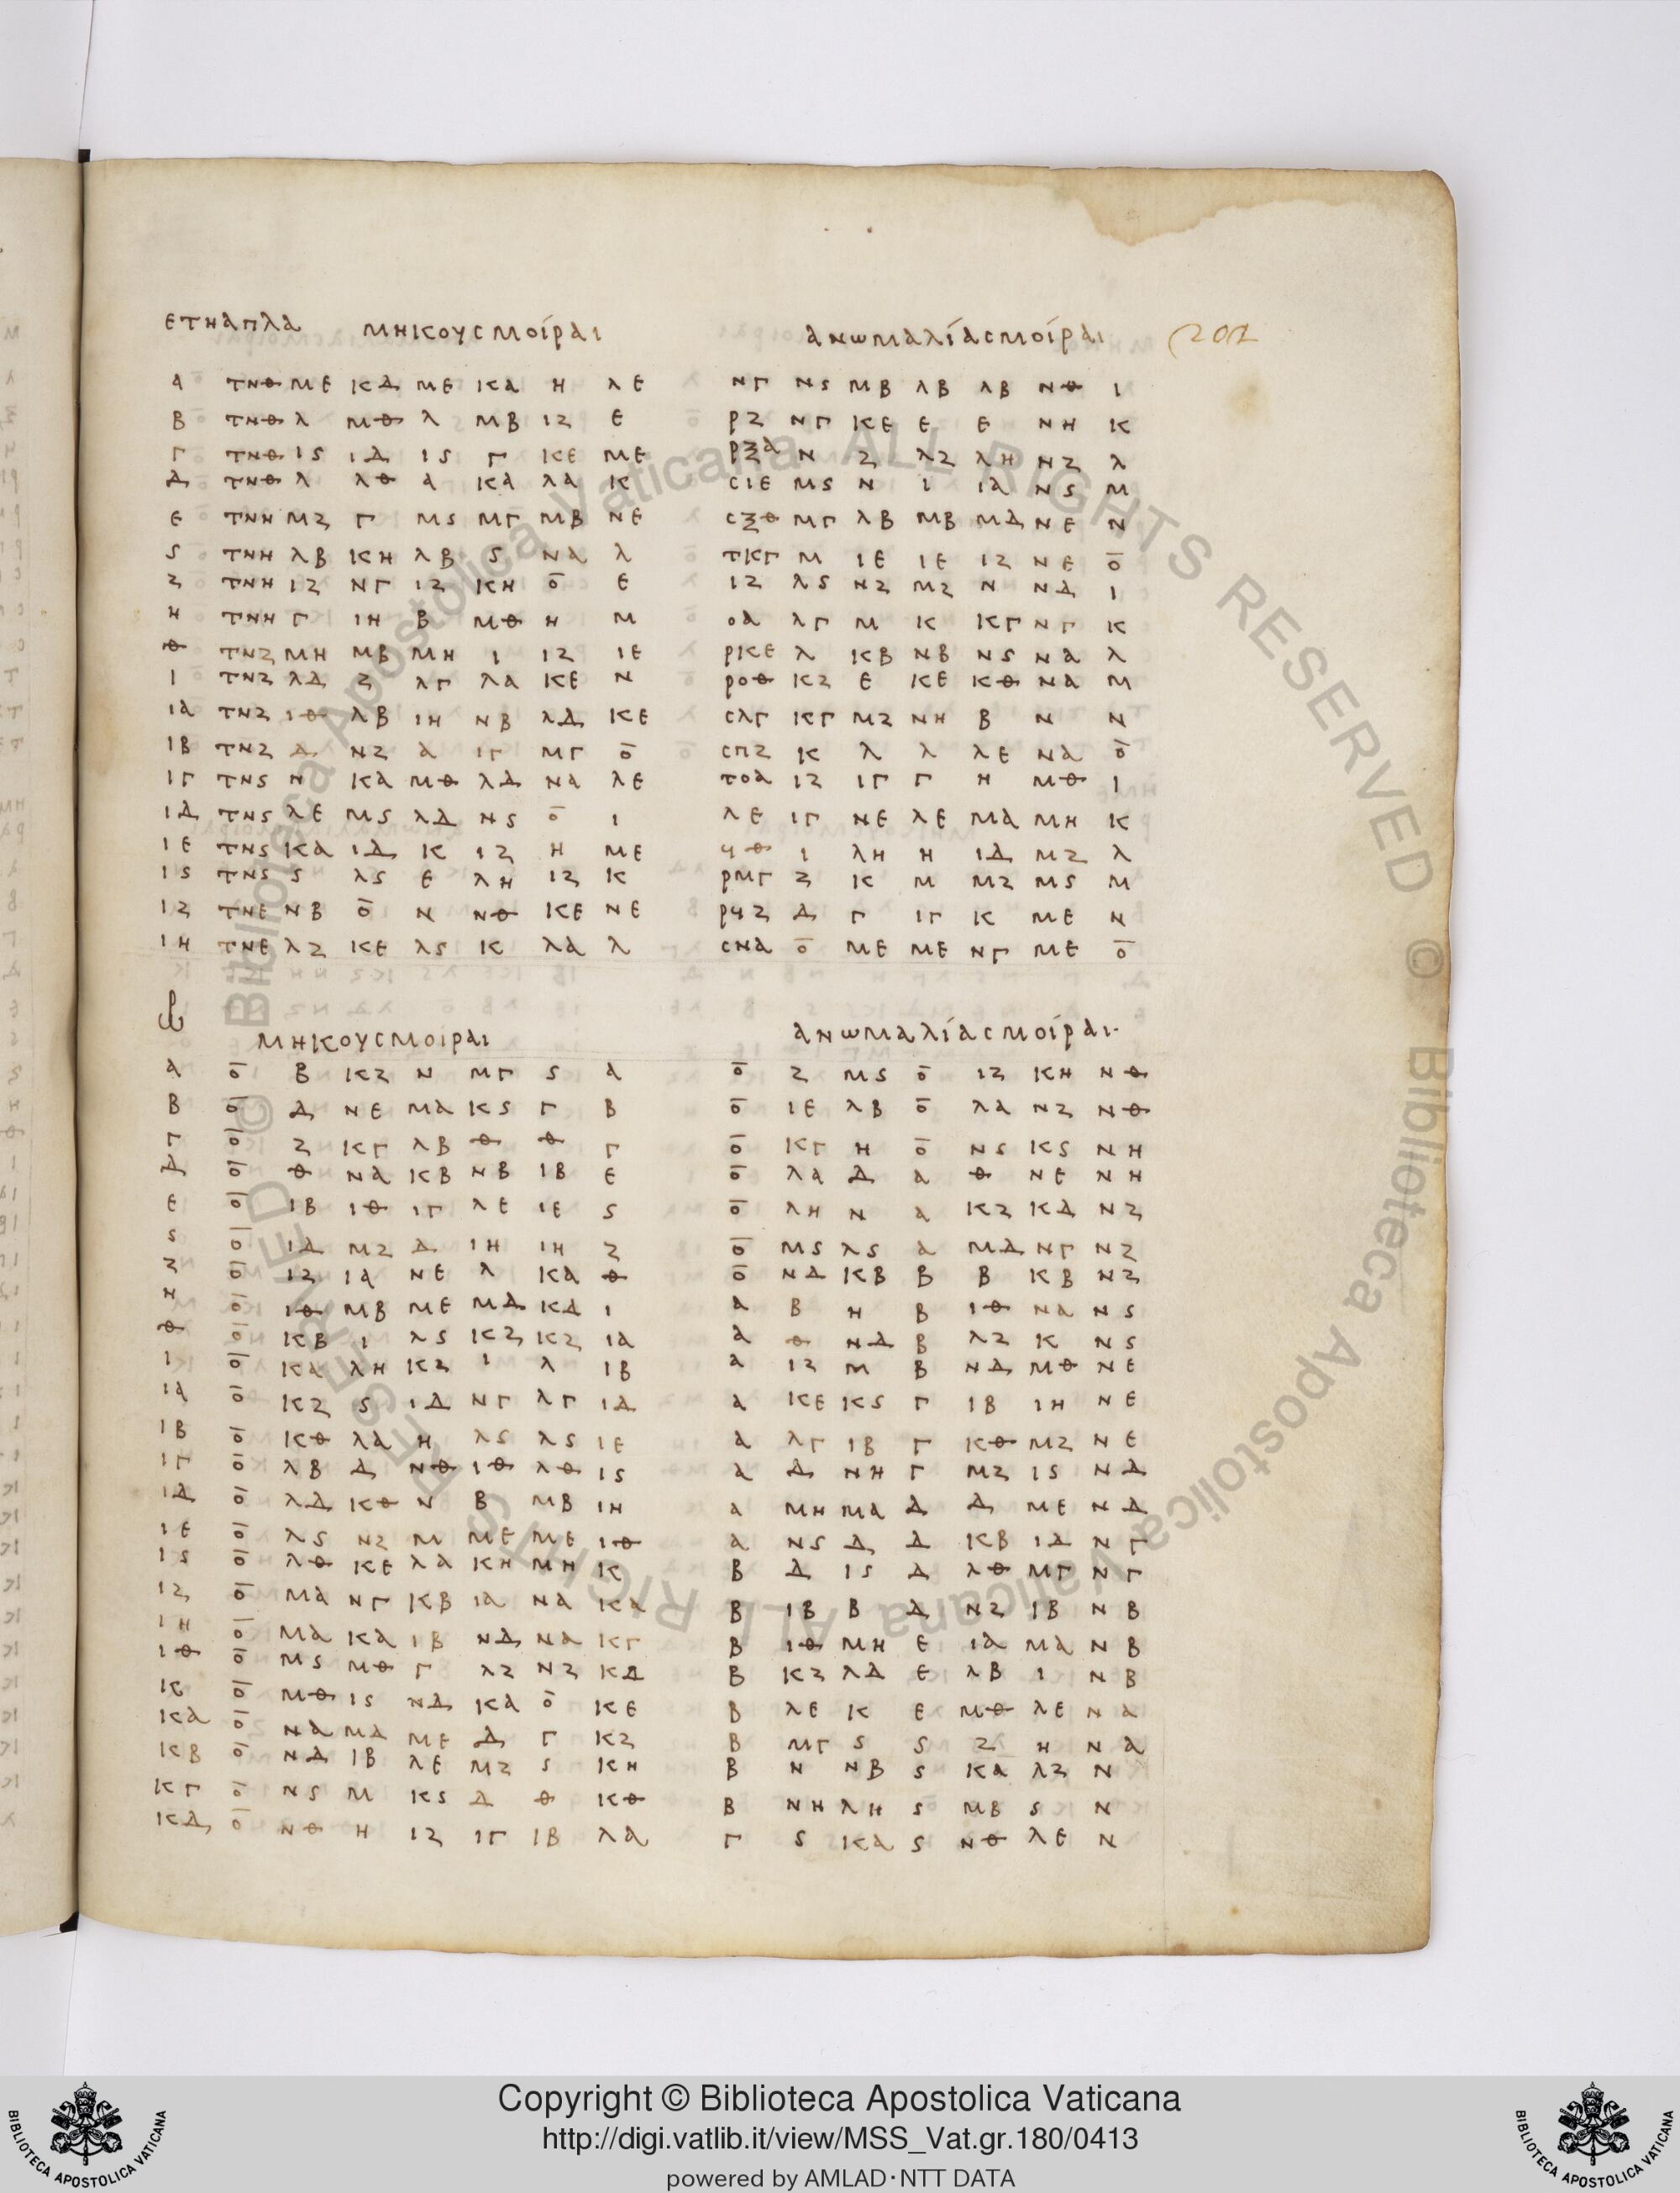 ετηαπλα μηκουσμοίραι ανωμαλίασμοίραι 201
α τνθ με κδ με κα η λε νγ νς μβ λβ λβ νθ ι
β τνθ λ μθ λ μβ ιζ ε ρζ νγ κε ε ε νη κ
γ τνθ ις ιδ ις γ κε με ρξα ν ζ λζ λη νζ λ
δ τνθ λ λθ α κα λα κ σιε μς ν ι ια νς μ
ε τνη μζ γ μς μγ μβ νε σξθ μγ λβ μβ μδ νε ν
ς τνη λβ κη λβ ς να λ τκγ μ ιε ιε ιζ νε ο
ζ τνη ιζ νγ ιζ κη ο ε ιζ λς νζ μζ ν νδ ι
η τνη γ ιη β μθ η μ οα λγ μ κ κγ νγ κ
θ τνζ μη μβ μη ι ιζ ιε ρκε λ κβ νβ νς να λ
ι τνζ λδ ζ λγ λα κε ν ροθ κζ ε κε κθ να μ
ια τνζ ιθ λβ ιη νβ λδ κε σλγ κγ μζ νη β ν ν
ιβ τνζ δ νζ α ιγ μγ ο σπζ κ λ λ λε να ο
ιγ τνς ν κα μθ λδ να λε τοα ιζ ιγ γ η μθ ι
ιδ τνς λε μς λδ νς ο ι λε ιγ νε λε μα μη κ
ιε τνς κα ιδ κ ιζ η με ϥθ ι λη η ιδ μζ λ
ις τνς ς λς ε λη ιζ κ ρμγ ζ κ μ μζ μς μ
ιζ τνε νβ ο ν νθ κε νε ρϥζ δ γ ιγ κ με ν
ιη τνε λζ κε λς κ λα λ σνα ο με με νγ με ο
μηκουσμοιραι ανωμαλίασμοίραι·
α ο β κζ ν μγ ς α ο ζ μς ο ιζ κη νθ
β ο δ νε μα κς γ β ο ιε λβ ο λα νζ νθ
γ ο ζ κγ λβ θ θ γ ο κγ η ο νς κς νη
δ ο θ να κβ νβ ιβ ε ο λα δ α θ νε νη
ε ο ιβ ιθ ιγ λε ιε ς ο λη ν α κζ κδ νζ
ς ο ιδ μζ δ ιη ιη ζ ο μς λς α μδ νγ νζ
ζ ο ιζ ια νε λ κα θ ο νδ κβ β β κβ νζ
η ο ιθ μβ με μδ κδ ι α β η β ιθ να νς
θ ο κβ ι λς κζ κζ ια α θ νδ β λζ κ νς
ι ο κα λη κζ ι λ ιβ α ιζ μ β νδ μθ νε
ια ο κζ ς ιδ νγ λγ ιδ α κε κς γ ιβ ιη νε
ιβ ο κθ λα η λς λς ιε α λγ ιβ γ κθ μζ νε
ιγ ο λβ δ νθ ιθ λθ ις α δ νη γ μζ ις νδ
ιδ ο λδ κθ ν β μβ ιη α μη μα δ δ με νδ
ιε ο λς νζ μ με με ιθ α νς δ δ κβ ιδ νγ
ις ο λθ κε λα κη μη κ β δ ις δ λθ μγ νγ
ιζ ο μα νγ κβ ια να κα β ιβ β δ νζ ιβ νβ
ιη ο μα κα ιβ νδ να κγ β ιθ μη ε ια μα νβ
ιθ ο μς μθ γ λζ νζ κδ β κζ λδ ε λβ ι νβ
κ ο μθ ις νδ κα ο κε β λε κ ε μθ λε να
κα ο να μδ με δ γ κζ β μγ ς ς ζ η να
κβ ο νδ ιβ λε μζ ς κη β ν νβ ς κα λζ ν
κγ ο νς μ κς δ θ κθ β νη λη ς μβ ς ν
κδ ο νθ η ιζ ιγ ιβ λα γ ς κα ς νθ λε ν
Copyright © Biblioteca Apostolica Vaticana
http://digi.vatlib.it/view/MSS_Vat.gr.180/0413
powered by AMLAD·NTT DATA